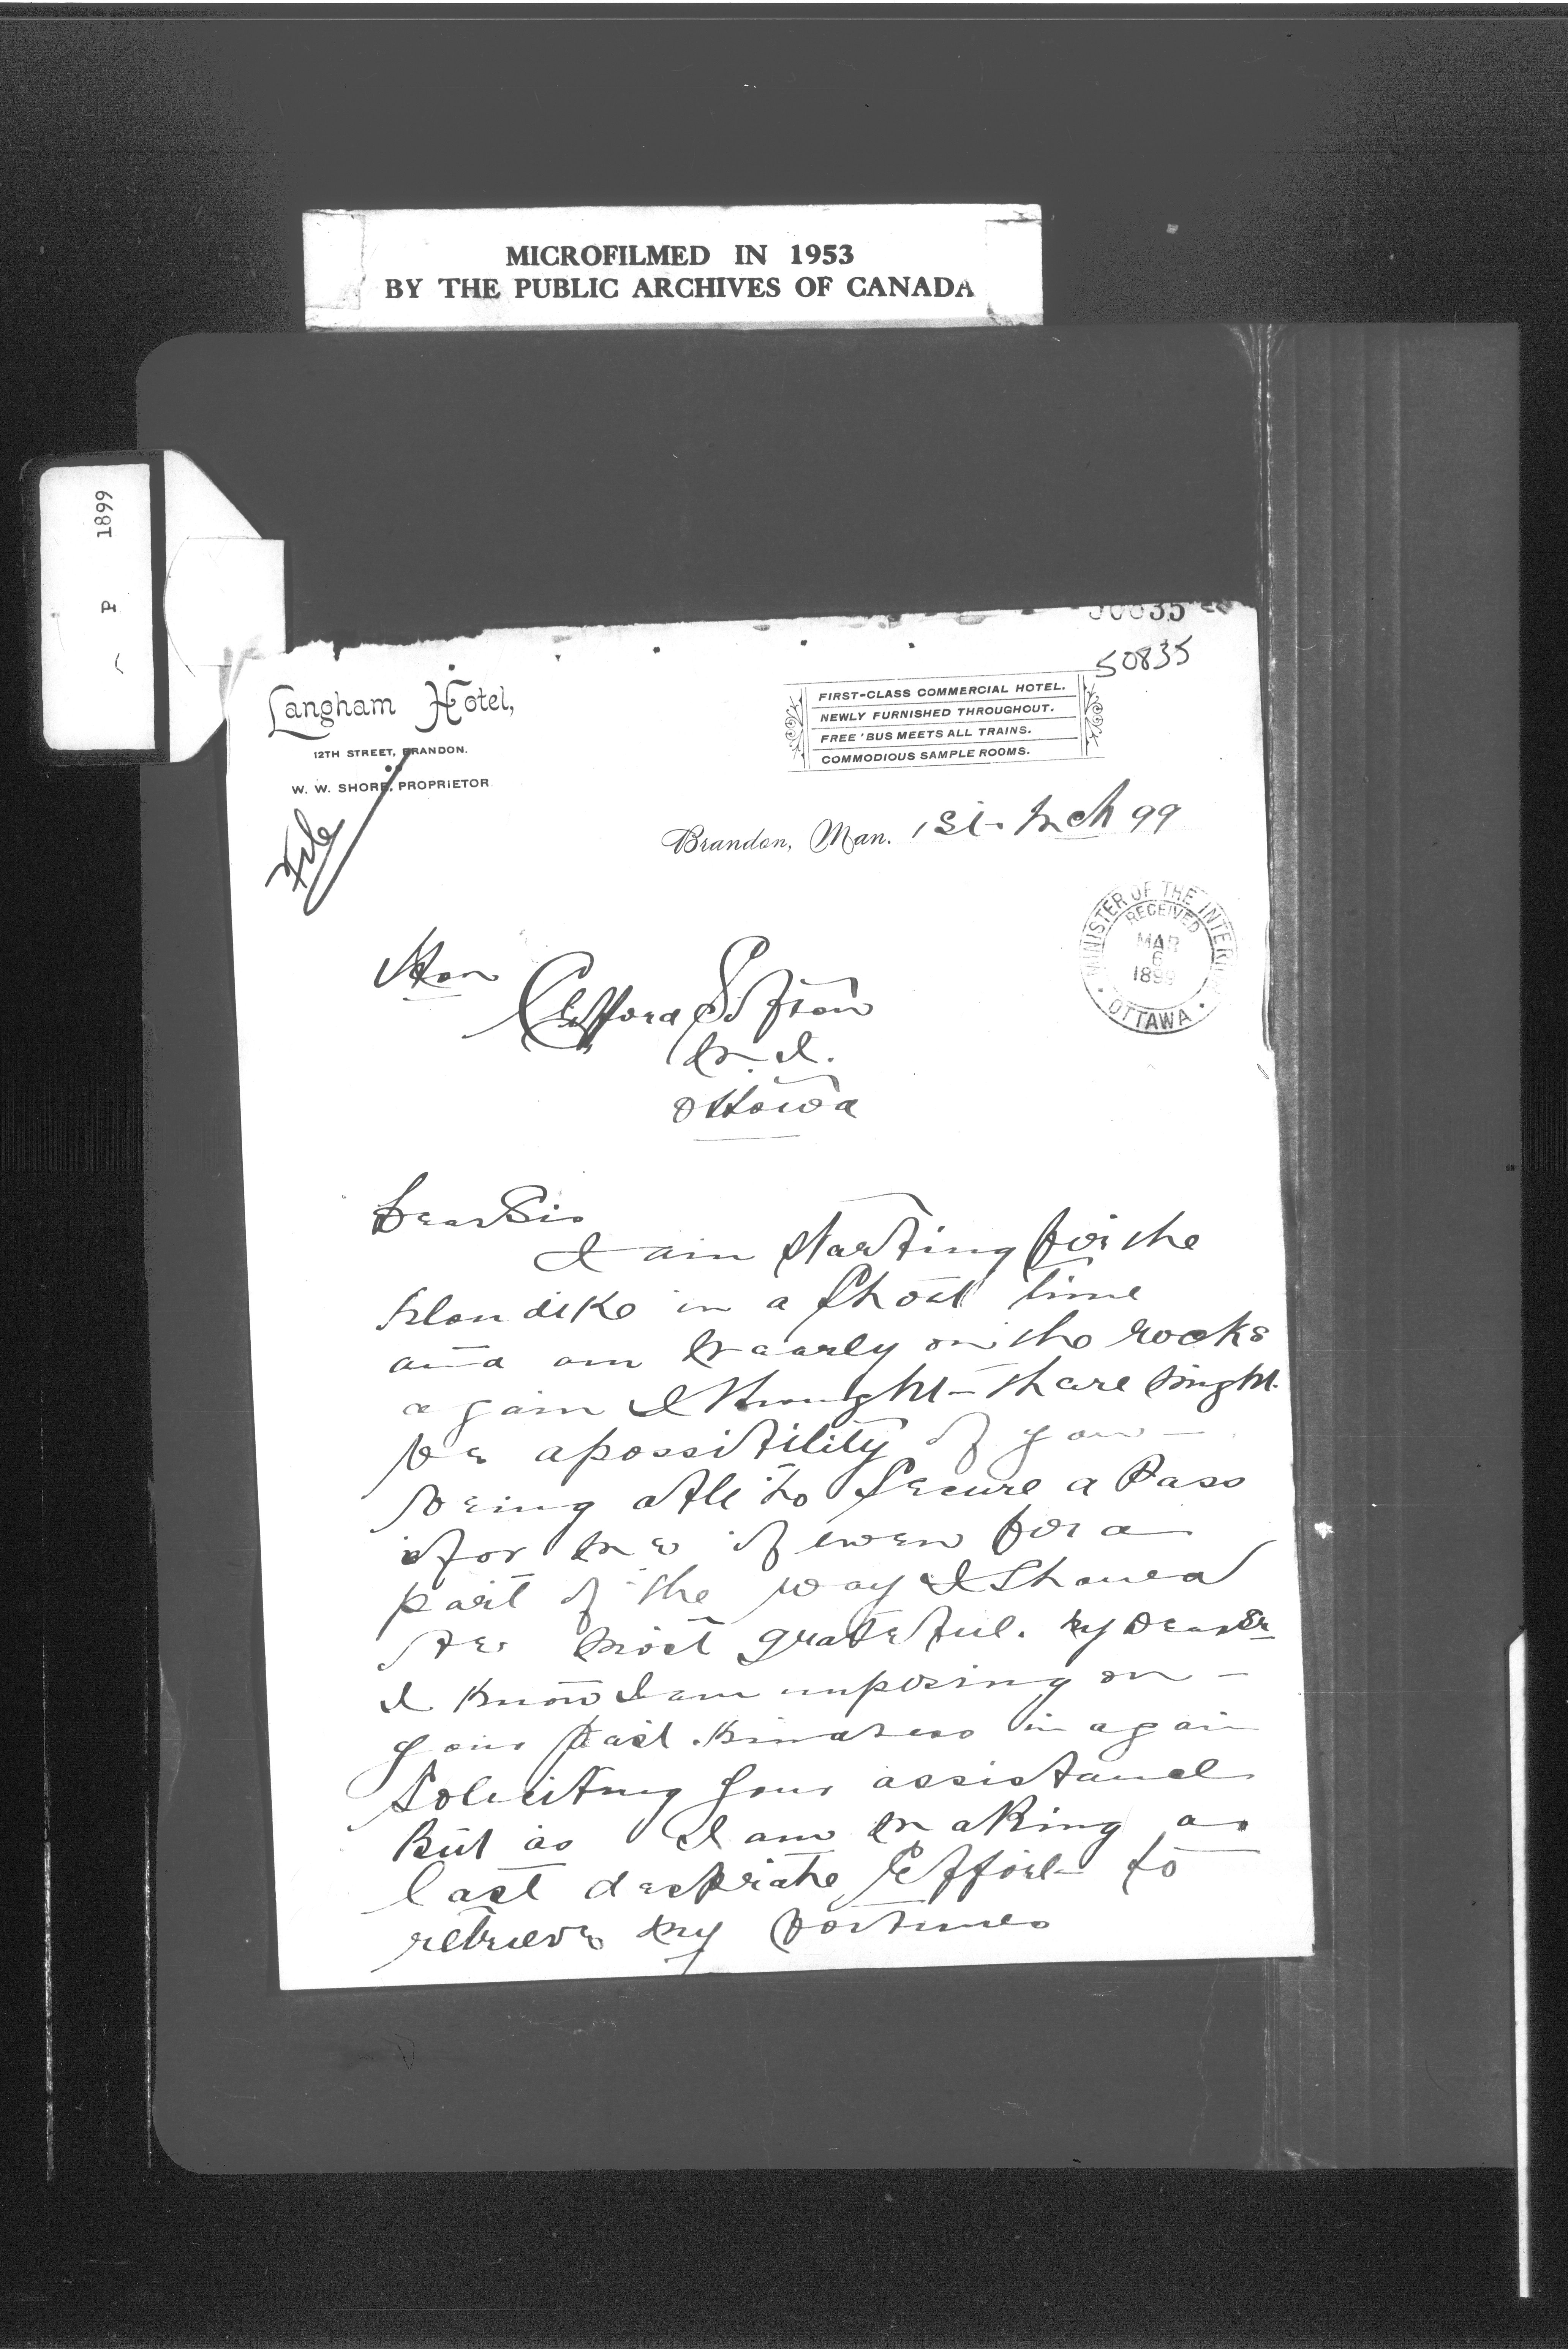 MICROFILMED IN 1953
BY THE PUBLIC ARCHIVES OF CANADA
P 1899
50835
50835
Langham Hotel,
12TH STREET, BRANDON.
W. W. SHORE, PROPRIETOR
File
FIRST-CLASS COMMERCIAL HOTEL.
NEWLY FURNISHED THROUGHOUT.
FREE 'BUS MEETS ALL TRAINS.
COMMODIOUS SAMPLE ROOMS.
Brandon, Man. 1st Mch 99
MINISTER OF THE INTERIOR
RECEIVED
MAR
6
1899
OTTAWA
Hon
Clifford Sifton
M.I.
Ottawa
Dear Sir
I am starting for the
Klondike in a short time
and am nearly on the rocks
again I thought there might
be a possibility of you
being able to secure a Pass
for me if even for a
part of the way I Should
be most grateful. My Dear Sr
I know I am imposing on
your past kindness in again
Soliciting your assistance
But as I am making a
last desprate Effort to
retrieve my fortunes